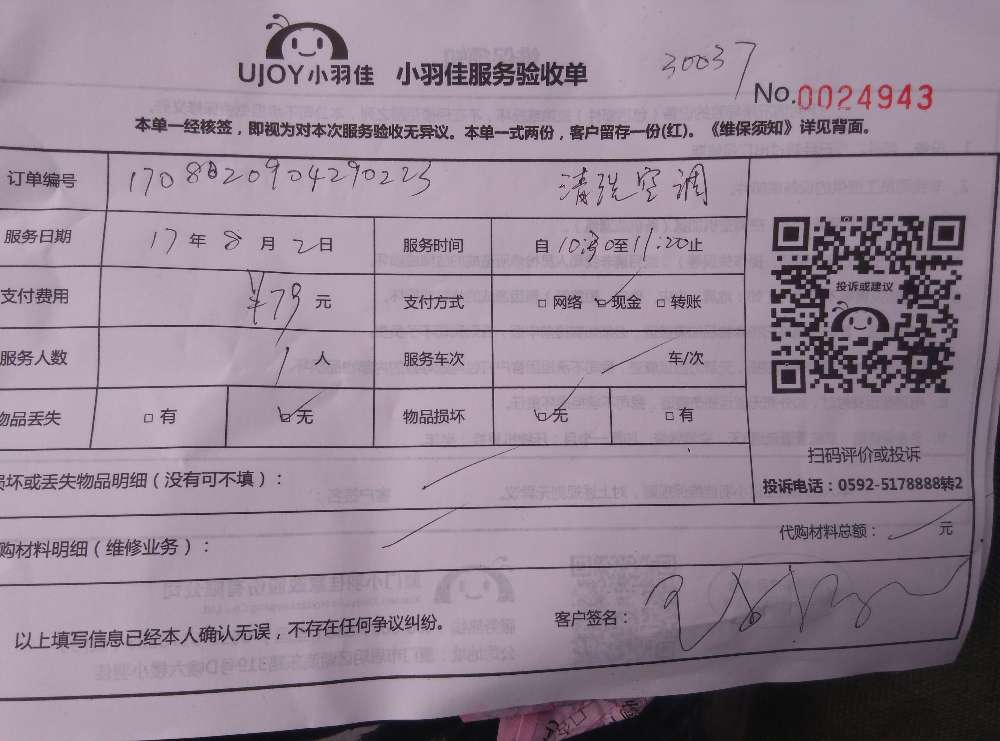 UJOY小羽佳 小羽佳服务验收单 30037
No.0024943
本单一经核签，即视为对本次服务验收无异议。本单一式两份，客户留存一份(红)。《维保须知》详见背面。
订单编号 清洗空调
服务日期 17年8月2日 服务时间 自10:30至11:20止
投诉或建议
支付费用 ¥79元 支付方式 □网络 □现金 □转账
服务人数 1人 服务车次 车/次
物品丢失 □有 □无 物品损坏 □无 □有
扫码评价或投诉
损坏或丢失物品明细（没有可不填）：
投诉电话：0592-5178888转2
购材料明细（维修业务）： 代购材料总额： 元
以上填写信息已经本人确认无误，不存在任何争议纠纷。 客户签名：